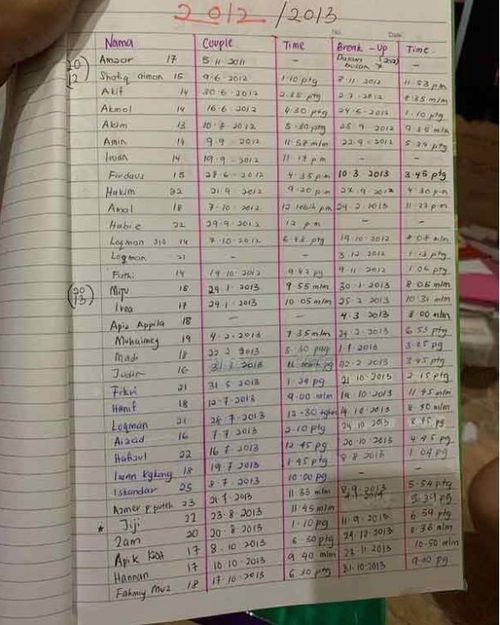 2012/2013
No. Date
Nama Couple Time Break-Up Time
Amzar 17 5.11.2011 - Dalam bulan 7 (2012) -
20
12
Shafiq aiman 15 9.6.2012 1.10 ptg 8.11.2012 11.53 pm
Akif 14 30.6.2012 2.35 ptg 2.7.2012 8.35 mlm
Akmal 14 16.6.2012 4.30 ptg 24.6.2012 1.10 ptg
Akim 13 5.30 ptg 25.9.2012
Amin 14 9.9.2012 11.58 mlm 22.9.2012 5.39 ptg
14 19.9.2012 11.17 pm - -
Firdaus 15 28.6.2012 4.35 pm 10.3.2013 3.45 ptg
Hakim 22 21.9.2012 9.20 pm 4.30 pm
Amal 18 7.10.2012 12 lebih pm 24.2.2013 11.27 pm
Habie 22 29.9.2012 12 pm - -
Loqman 14 7.10.2012 ptg 19.10.2012 mlm
Loqman 21 - - 3.12.2012 ptg
14 19.10.2012 9.42 pg 9.11.2012 1.06 ptg
20
13
18 29.1.2013 9.55 mlm 30.1.2013 8.05 mlm
17 29.1.2013 10.05 mlm 25.2.2013 10.31 mlm
Apiz Appila 18 - - 4.3.2013 8.00 mlm
Muhaimey 19 4.2.2013 7.35 mlm 24.2.2013 6.53 ptg
Madi 18 22.2.2013 3.05 pg
16 3.45 ptg
Fikri 21 31.5.2013 1.29 pg 21.10.2013 2.15 ptg
Hanif 18 12.7.2013 9.00 mlm 19.10.2013 11.45 mlm
Loqman 21 28.7.2013 12.30 8.50 mlm
Aizad 16 7.7.2013 2.10 ptg 24.10.2013 8.45 pg
Hafizul 22 16.7.2013 12.45 pg 20.10.2013 4.45 pg
18 19.7.2013 1.45 ptg 8.8.2013 1.04 pg
Iskandar 25 8.7.2013 10.00 pg - -
23 21.7.2013 11.33 mlm 8.9.2013 5.54 ptg
* Jiji 22 23.8.2013 11.45 mlm 3.39 pg
Zam 20 20.8.2013 1.10 pg 11.9.2013 6.59 ptg
Apik 17 8.10.2013 6.30 ptg 24.12.2013 8.36 mlm
Hannan 17 10.10.2013 9.40 mlm 23.11.2013 10.50 mlm
Fahmy Muz 18 17.10.2013 6.30 ptg 31.10.2013 9.00 pg